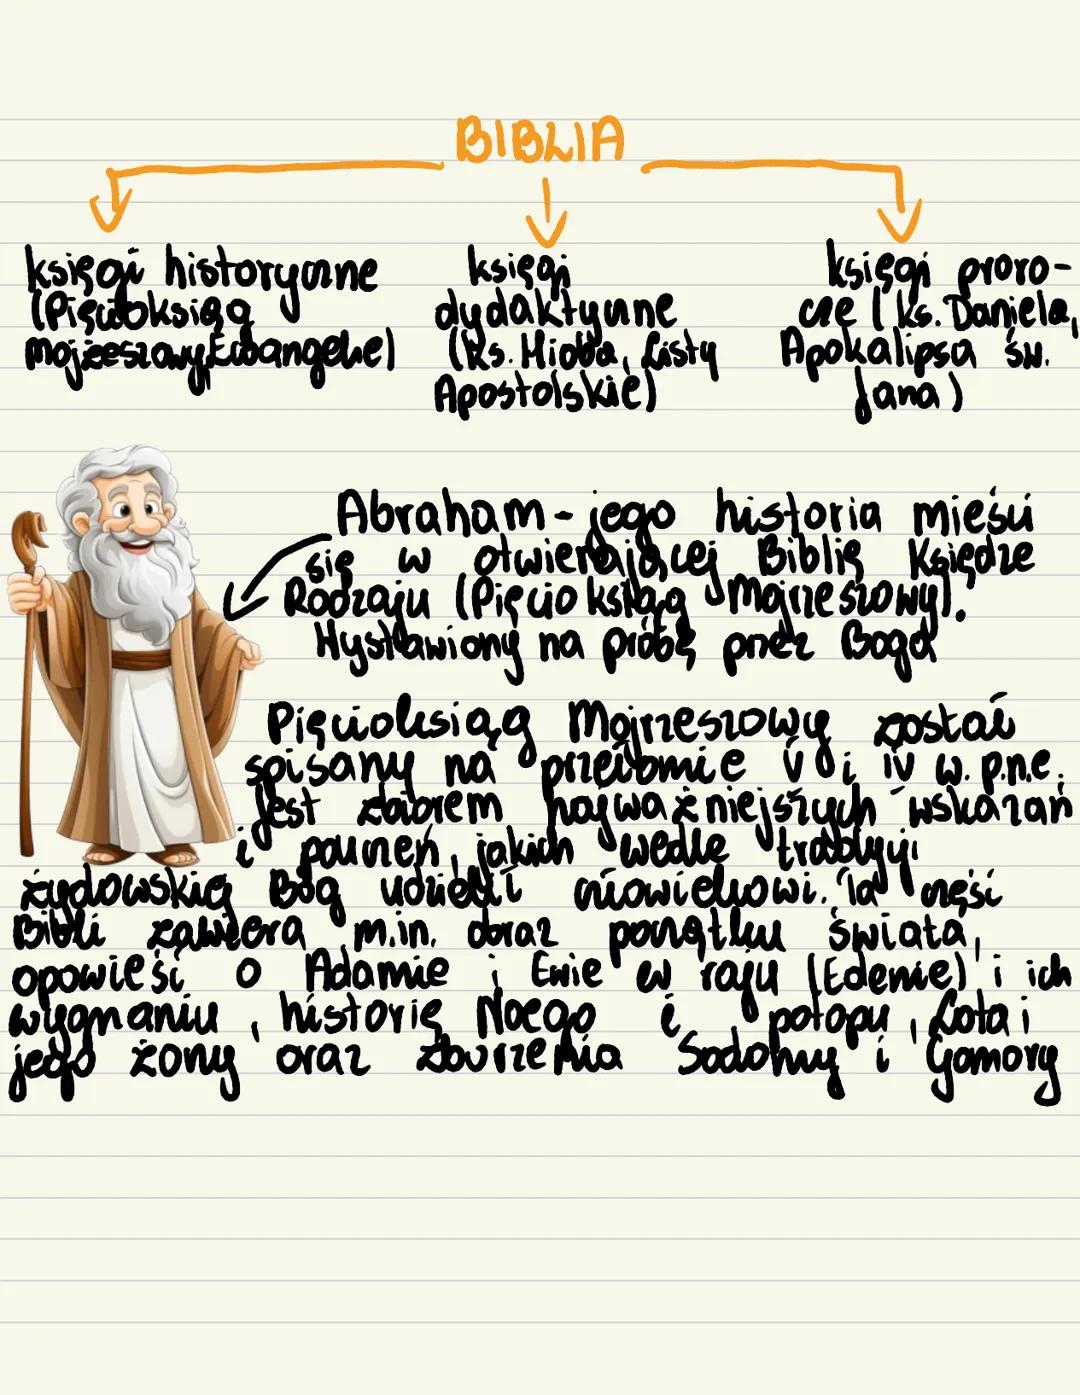 BIBLIA
księgi historyczne
(Pięcioksiąg
Mojżeszowy, Ewangelie)
księgi
dydaktyczne
(ks. Hioba, Listy
Apostolskie)
księgi proro-
cze (ks. Daniela,
Apokalipsa św.
Jana)
Abraham - jego historia mieści
się w otwierającej Biblię Księdze
Rodzaju (Pięcioksiąg Mojrzeszowy).
Wystawiony na próbę przez Boga
Pięcioksiąg Mojrzeszowy został
spisany na przełomie V i IV w. p.n.e.
Jest zbiorem najważniejszych wskazań
i pouczeń, jakich wedle tradycji
żydowskiej Bóg udzielił człowiekowi. Ta część
Bibli zawiera m.in. obraz początku świata,
opowieść o Adamie i Ewie w raju (Edenie) i ich
wygnaniu, historię Noego i potopu, Lota i
jego żony oraz zburzenia Sodomy i Gomory